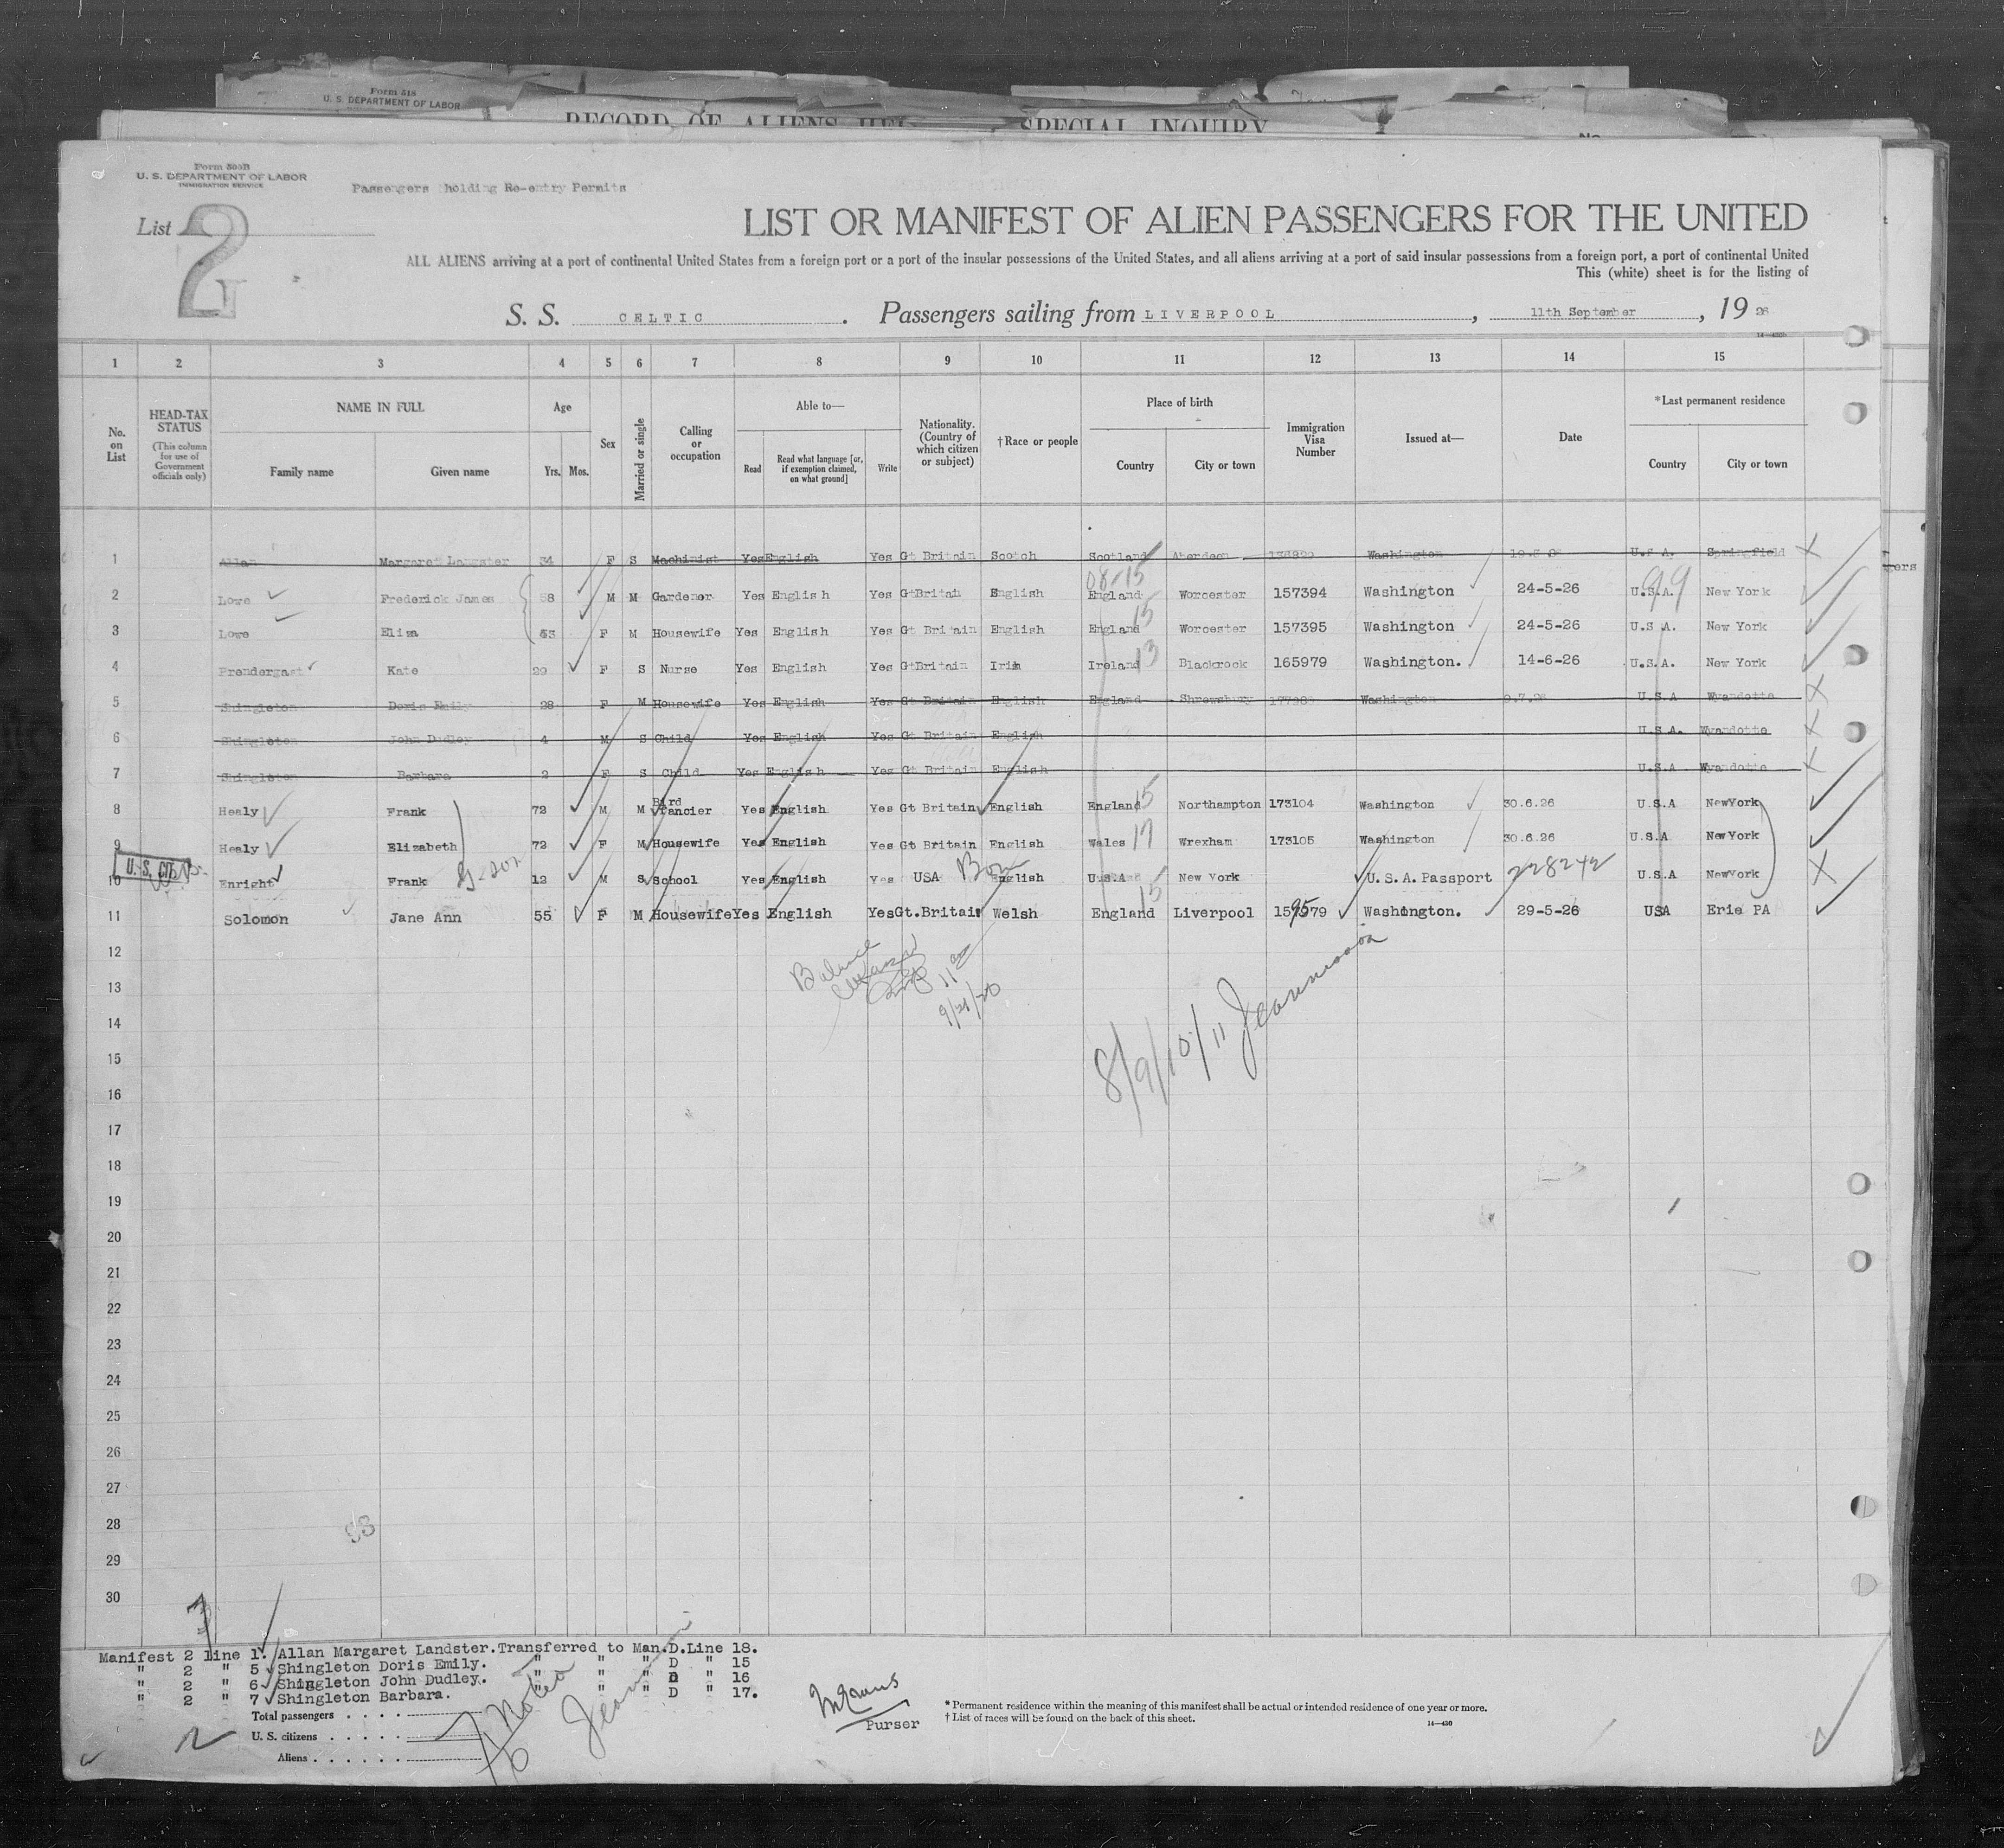 Form 518
U. S. DEPARTMENT OF LABOR
RECORD OF ALIENS HELD SPECIAL INQUIRY
No.
Form 500B
U. S. DEPARTMENT OF LABOR
IMMIGRATION SERVICE
Passengers holding Re-entry Permits
List 2
LIST OR MANIFEST OF ALIEN PASSENGERS FOR THE UNITED
ALL ALIENS arriving at a port of continental United States from a foreign port or a port of the insular possessions of the United States, and all aliens arriving at a port of said insular possessions from a foreign port, a port of continental United
This (white) sheet is for the listing of
S. S. CELTIC. Passengers sailing from LIVERPOOL, 11th September, 19 26
14—430b
1 2 3 4 5 6 7 8 9 10 11 12 13 14 15
No. on List
HEAD-TAX STATUS (This column for use of Government officials only)
NAME IN FULL
Family name Given name
Age
Yrs. Mos.
Sex
Married or single
Calling or occupation
Able to—
Read Read what language [or, if exemption claimed, on what ground] Write
Nationality. (Country of which citizen or subject)
†Race or people
Place of birth
Country City or town
Immigration Visa Number
Issued at—
Date
*Last permanent residence
Country City or town
1 Allan Margaret Langster 34 F S Machinist Yes English Yes Gt Britain Scotch Scotland Aberdeen Washington U.S.A. Springfield X
08-15 99
2 Lowe Frederick James 58 M M Gardener Yes English Yes GtBritain English England Worcester 157394 Washington 24-5-26 U.S.A. New York
15
3 Lowe Eliza F M Housewife Yes English Yes Gt Britain English England Worcester 157395 Washington 24-5-26 U.S A. New York
4 Prendergast Kate 29 F S Nurse Yes English Yes GtBritain Irish Ireland 13 Blackrock 165979 Washington. 14-6-26 U.S.A. New York
5 Shingleton Doris Emily 28 F M Housewife Yes English Yes Gt Britain English England Shrewsbury Washington 9.7.26 U.S.A Wyandotte X
6 Shingleton John Dudley 4 M S Child Yes English Yes Gt Britain English U.S.A. Wyandotte X
7 Shingleton Barbara 2 F S Child Yes English Yes Gt Britain English U.S.A Wyandotte X
8 Healy Frank 72 M M Bird Fancier Yes English Yes Gt Britain English England 15 Northampton 173104 Washington 30.6.26 U.S.A NewYork
9 Healy Elizabeth 72 F M Housewife Yes English Yes Gt Britain English Wales 17 Wrexham 173105 Washington 30.6.26 U.S.A NewYork
U. S. CIT.
10 Enright Frank G-son 12 M S School Yes English Yes USA English U.S.A New York U.S.A.Passport 228242 U.S.A NewYork X
15
11 Solomon Jane Ann 55 F M Housewife Yes English Yes Gt.Britain Welsh England Liverpool 159579 Washington. 29-5-26 USA Erie PA
12
13
14
8/9/10/11 Jeanneson
15
16
17
18
19
20
21
22
23
24
25
26
27
28
29
30
Manifest 2 line 1. Allan Margaret Landster.Transferred to Man.D.Line 18.
" 2 " 5 Shingleton Doris Emily. " " " D " 15
" 2 " 6 Shingleton John Dudley. " " " D " 16
" 2 " 7 Shingleton Barbara. " " " D " 17.
Total passengers
U. S. citizens
Aliens
Noted
Purser
* Permanent residence within the meaning of this manifest shall be actual or intended residence of one year or more.
† List of races will be found on the back of this sheet.
14—430